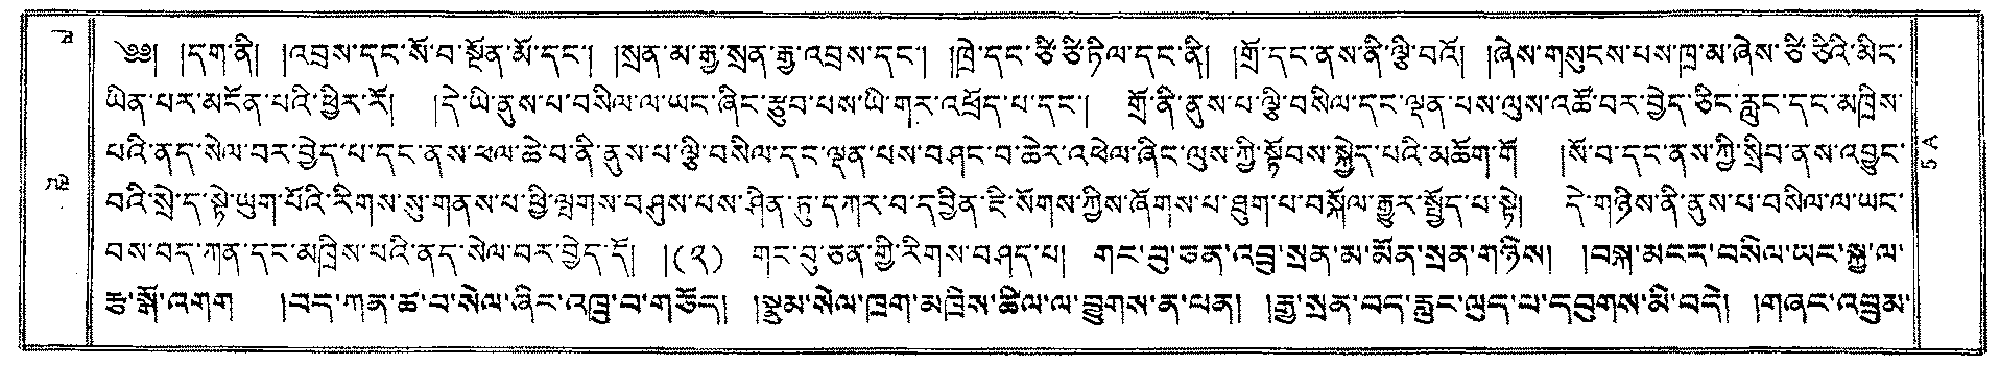 ༄༅། །དག་ནི། །འབྲས་དང་སོ་བ་སྔོན་མོ་དང་། །སྲན་མ་རྒྱ་སྲན་རྒྱ་འབྲས་དང་། །ཁྲེ་དང་ཙི་ཙི་ཏིལ་དང་ནི། །གྲོ་དང་ནས་ནི་ལྕི་བའོ། །ཞེས་གསུངས་པས་ཁྲ་མ་ཞེས་ཙི་ཙིའི་མིང་
ཡིན་པར་མངོན་པའི་ཕྱིར་རོ། །དེ་ཡི་ནུས་པ་བསིལ་ལ་ཡང་ཞིང་རྩུབ་པས་ཡི་གར་འཕྲོད་པ་དང་། གྲོ་ནི་ནུས་པ་ལྕི་བསིལ་དང་ལྡན་པས་ལུས་འཚོ་བར་བྱེད་ཅིང་རླུང་དང་མཁྲིས་
པའི་ནད་སེལ་བར་བྱེད་པ་དང་ནས་ཕལ་ཆེ་བ་ནི་ནུས་པ་ལྕི་བསིལ་དང་ལྡན་པས་བཤང་བ་ཆེར་འཕེལ་ཞིང་ལུས་ཀྱི་སྟོབས་སྐྱེད་པའི་མཆོག་གོ །སོ་བ་དང་ནས་ཀྱི་སྲིབ་ནས་འབྱུང་
བའི་སྲེ་ད་སྟེ་ཡུག་པོའི་རིགས་སུ་གནས་པ་ཕྱི་ལྤགས་བཤུས་པས་ཤིན་ཏུ་དཀར་བ་དབྱིན་ཇི་སོགས་ཀྱིས་ཞོགས་པ་ཐུག་པ་བསྐོལ་རྒྱུར་སྤྱོད་པ་སྟེ། དེ་གཉིས་ནི་ནུས་པ་བསིལ་ལ་ཡང་
བས་བད་ཀན་དང་མཁྲིས་པའི་ནད་སེལ་བར་བྱེད་དོ། །(༢) གང་བུ་ཅན་གྱི་རིགས་བཤད་པ། གང་བུ་ཅན་འབྲུ་སྲན་མ་མོན་སྲན་གཉིས། །བསྐ་མངར་བསིལ་ཡང་སྐྱ་ལ་
རྩ་སྒོ་འགག །བད་ཀན་ཚ་བ་སེལ་ཞིང་འཁྲུ་བ་གཅོད། །སྣུམ་སེལ་ཁྲག་མཁྲིས་ཚིལ་ལ་བྱུགས་ན་ཕན། །རྒྱ་སྲན་བད་རླུང་ལུད་པ་དབུགས་མི་བདེ། །གཞང་འབྲུམ་